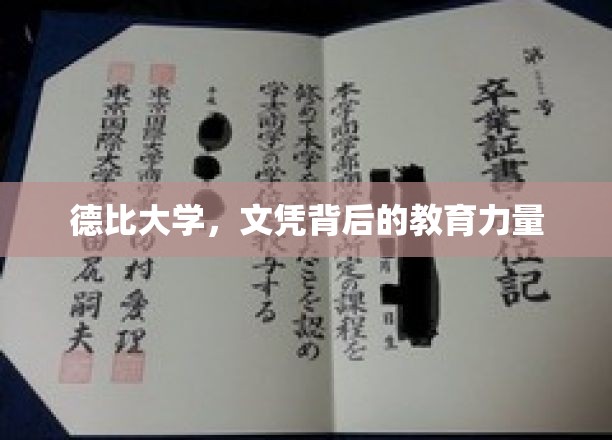 第 号
卒業証書 位記
本学商学部商学 所定の課程を
修めて本学を たことを認め
学士(商学)の学位 授与する
平成
東京国際大学商学 村 理
東京国際大学 田尻嗣夫
德比大学，文凭背后的教育力量